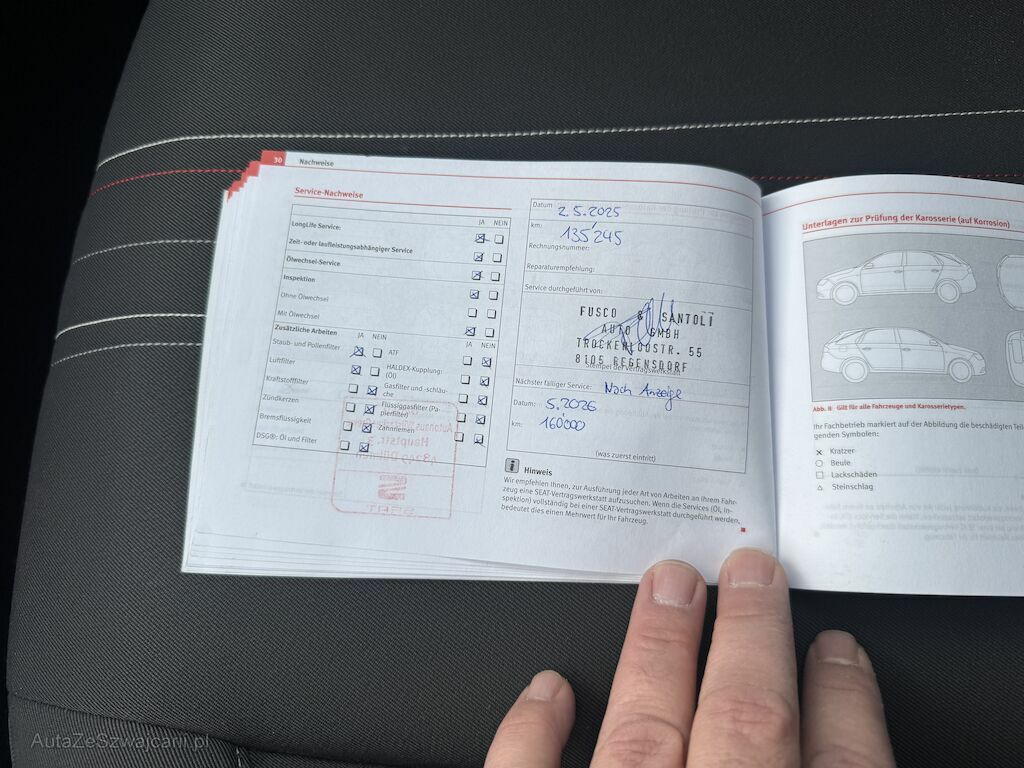 30 Nachweise
Service-Nachweise
JA NEIN
LongLife Service:
Zeit- oder laufleistungsabhängiger Service
Ölwechsel-Service
Inspektion
Ohne Ölwechsel
Mit Ölwechsel
Zusätzliche Arbeiten JA NEIN JA NEIN
Staub- und Pollenfilter ATF
Luftfilter HALDEX-Kupplung: (Öl)
Kraftstofffilter Gasfilter und -schläuche
Zündkerzen Flüssiggasfilter (Papierfilter)
Bremsflüssigkeit Zahnriemen
DSG®: Öl und Filter
Hauptstr. 3
SEAT
Datum 2.5.2025
km: 135'245
Rechnungsnummer:
Reparaturempfehlung:
Service durchgeführt von:
FUSCO & SANTOLI
AUTO GMBH
TROCKENLOOSTR. 55
8105 REGENSDORF
Stempel der Vertragswerkstatt
Nächster fälliger Service: Nach Anzeige
Datum: 5.2026
km: 160'000
(was zuerst eintritt)
i Hinweis
Wir empfehlen Ihnen, zur Ausführung jeder Art von Arbeiten an Ihrem Fahr-
zeug eine SEAT-Vertragswerkstatt aufzusuchen. Wenn die Services (Öl, In-
spektion) vollständig bei einer SEAT-Vertragswerkstatt durchgeführt werden,
bedeutet dies einen Mehrwert für Ihr Fahrzeug.
Unterlagen zur Prüfung der Karosserie (auf Korrosion)
Abb. 8 Gilt für alle Fahrzeuge und Karosserietypen.
Ihr Fachbetrieb markiert auf der Abbildung die beschädigten Teil
genden Symbolen:
Kratzer
Beule
Lackschäden
Steinschlag
AutaZeSzwajcarii.pl